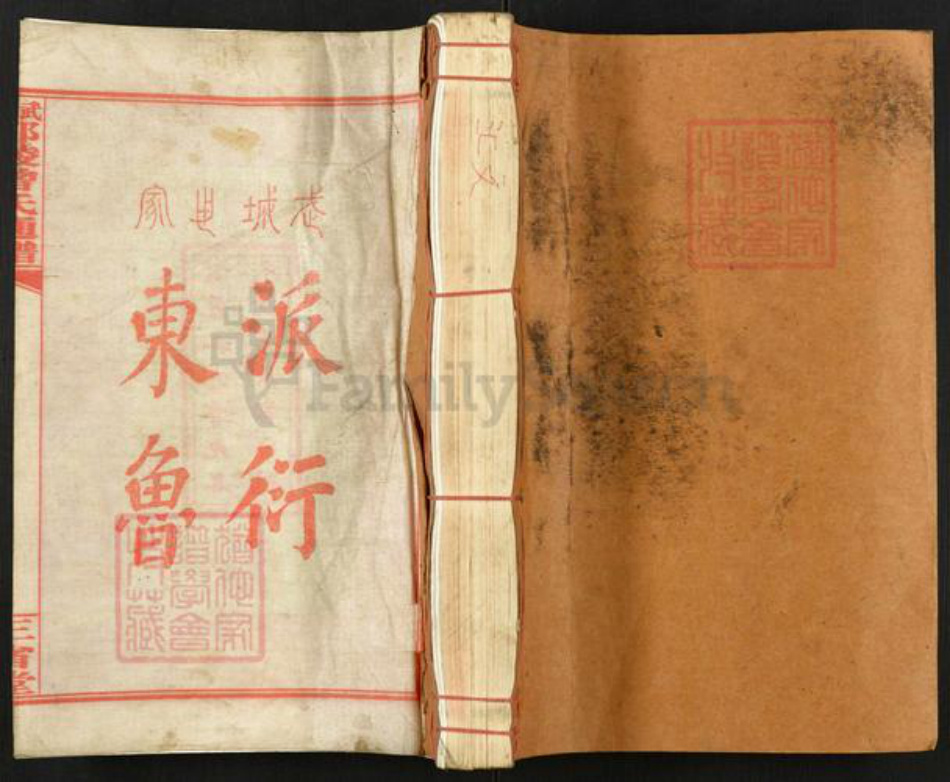 武城世家
派衍
東魯
邵陵曾氏通譜
三省堂
猶他家
譜學會
所藏
FamilySearch
猶他家
譜學會
所藏